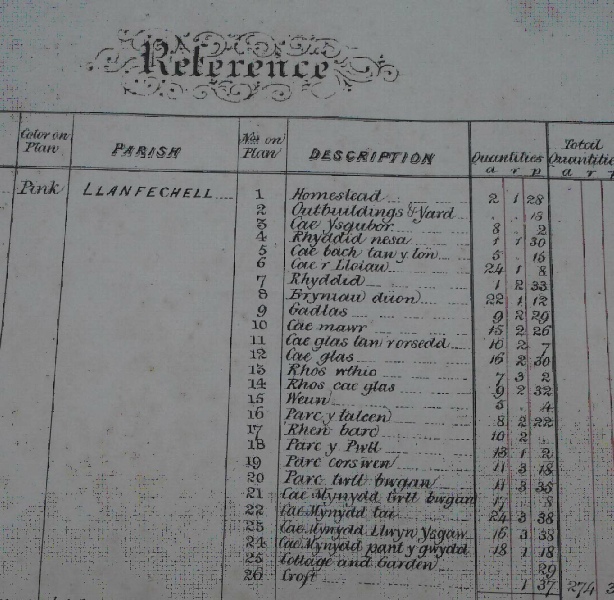 Reference
Color on Plan PARISH Nos. on Plan DESCRIPTION Quantities Total Quantities
a r p a r p
Pink LLANFECHELL 1 Homestead 2 1 28
2 Outbuildings & Yard 15
3 Cae Ysgubor 8 . 2
4 Rhyddid nesa 1 1 30
5 Cae bach tan y lon 5 . 15
6 Cae r Lloiau 24 1 8
7 Rhyddid 1 2 33
8 Bryniau duon 22 1 12
9 Gadlas 9 2 29
10 Cae mawr 15 2 26
11 Cae glas tan r orsedd 10 2 7
12 Cae glas 16 2 30
13 Rhos wthio 7 3 2
14 Rhos cae glas 9 2 32
15 Weun 5 . 4
16 Parc y talcen 8 2 22
17 Rhen barc 10 2 .
18 Parc y Pwll 13 1 2
19 Parc corswen 11 3 18
20 Parc twll bwgan 11 3 35
21 Cae Mynydd twll bwgan 17 8
22 Cae Mynydd tai 24 3 38
23 Cae Mynydd Llwyn Ysgaw 16 3 38
24 Cae Mynydd pant y gwydd 18 1 18
25 Cottage and Garden 29
26 Croft 1 37 274 3